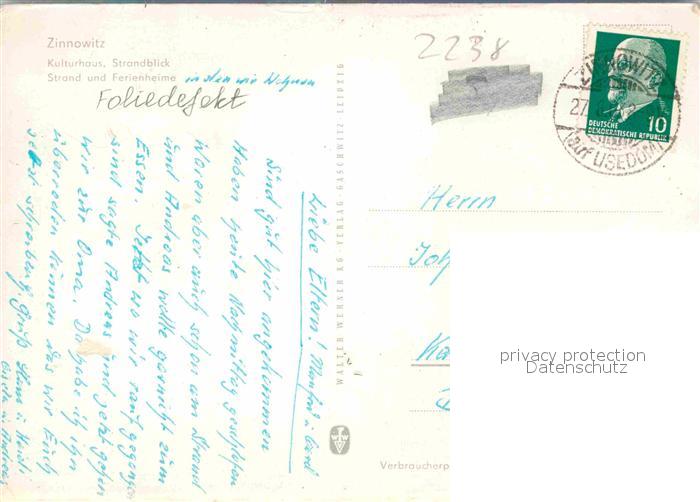 Zinnowitz
Kulturhaus, Strandblick
Strand und Ferienheime in den wir Wohnen
Foliedefekt
2238
ZINNOWITZ
27.
(auf USEDOM)
DEUTSCHE
DEMOKRATISCHE REPUBLIK
10
Liebe Eltern! Manfred u.
Sind gut hier angekommen
Haben heute Nachmittag geschlafen
waren aber auch schon am Strand
und Andreas wollte garnicht zum
Essen. Jetzt wo wir rauf gegangen
sind sagte Andreas und jetzt gehen
wir zur Oma. Da habe ich ihn
überreden können das wir Euch
selbst schreiben. Gruß
u. Andreas
WALTER WERNER KG · VERLAG · GASCHWITZ LEIPZIG
Herrn
Joh
Ka
privacy protection
Datenschutz
Verbraucherp